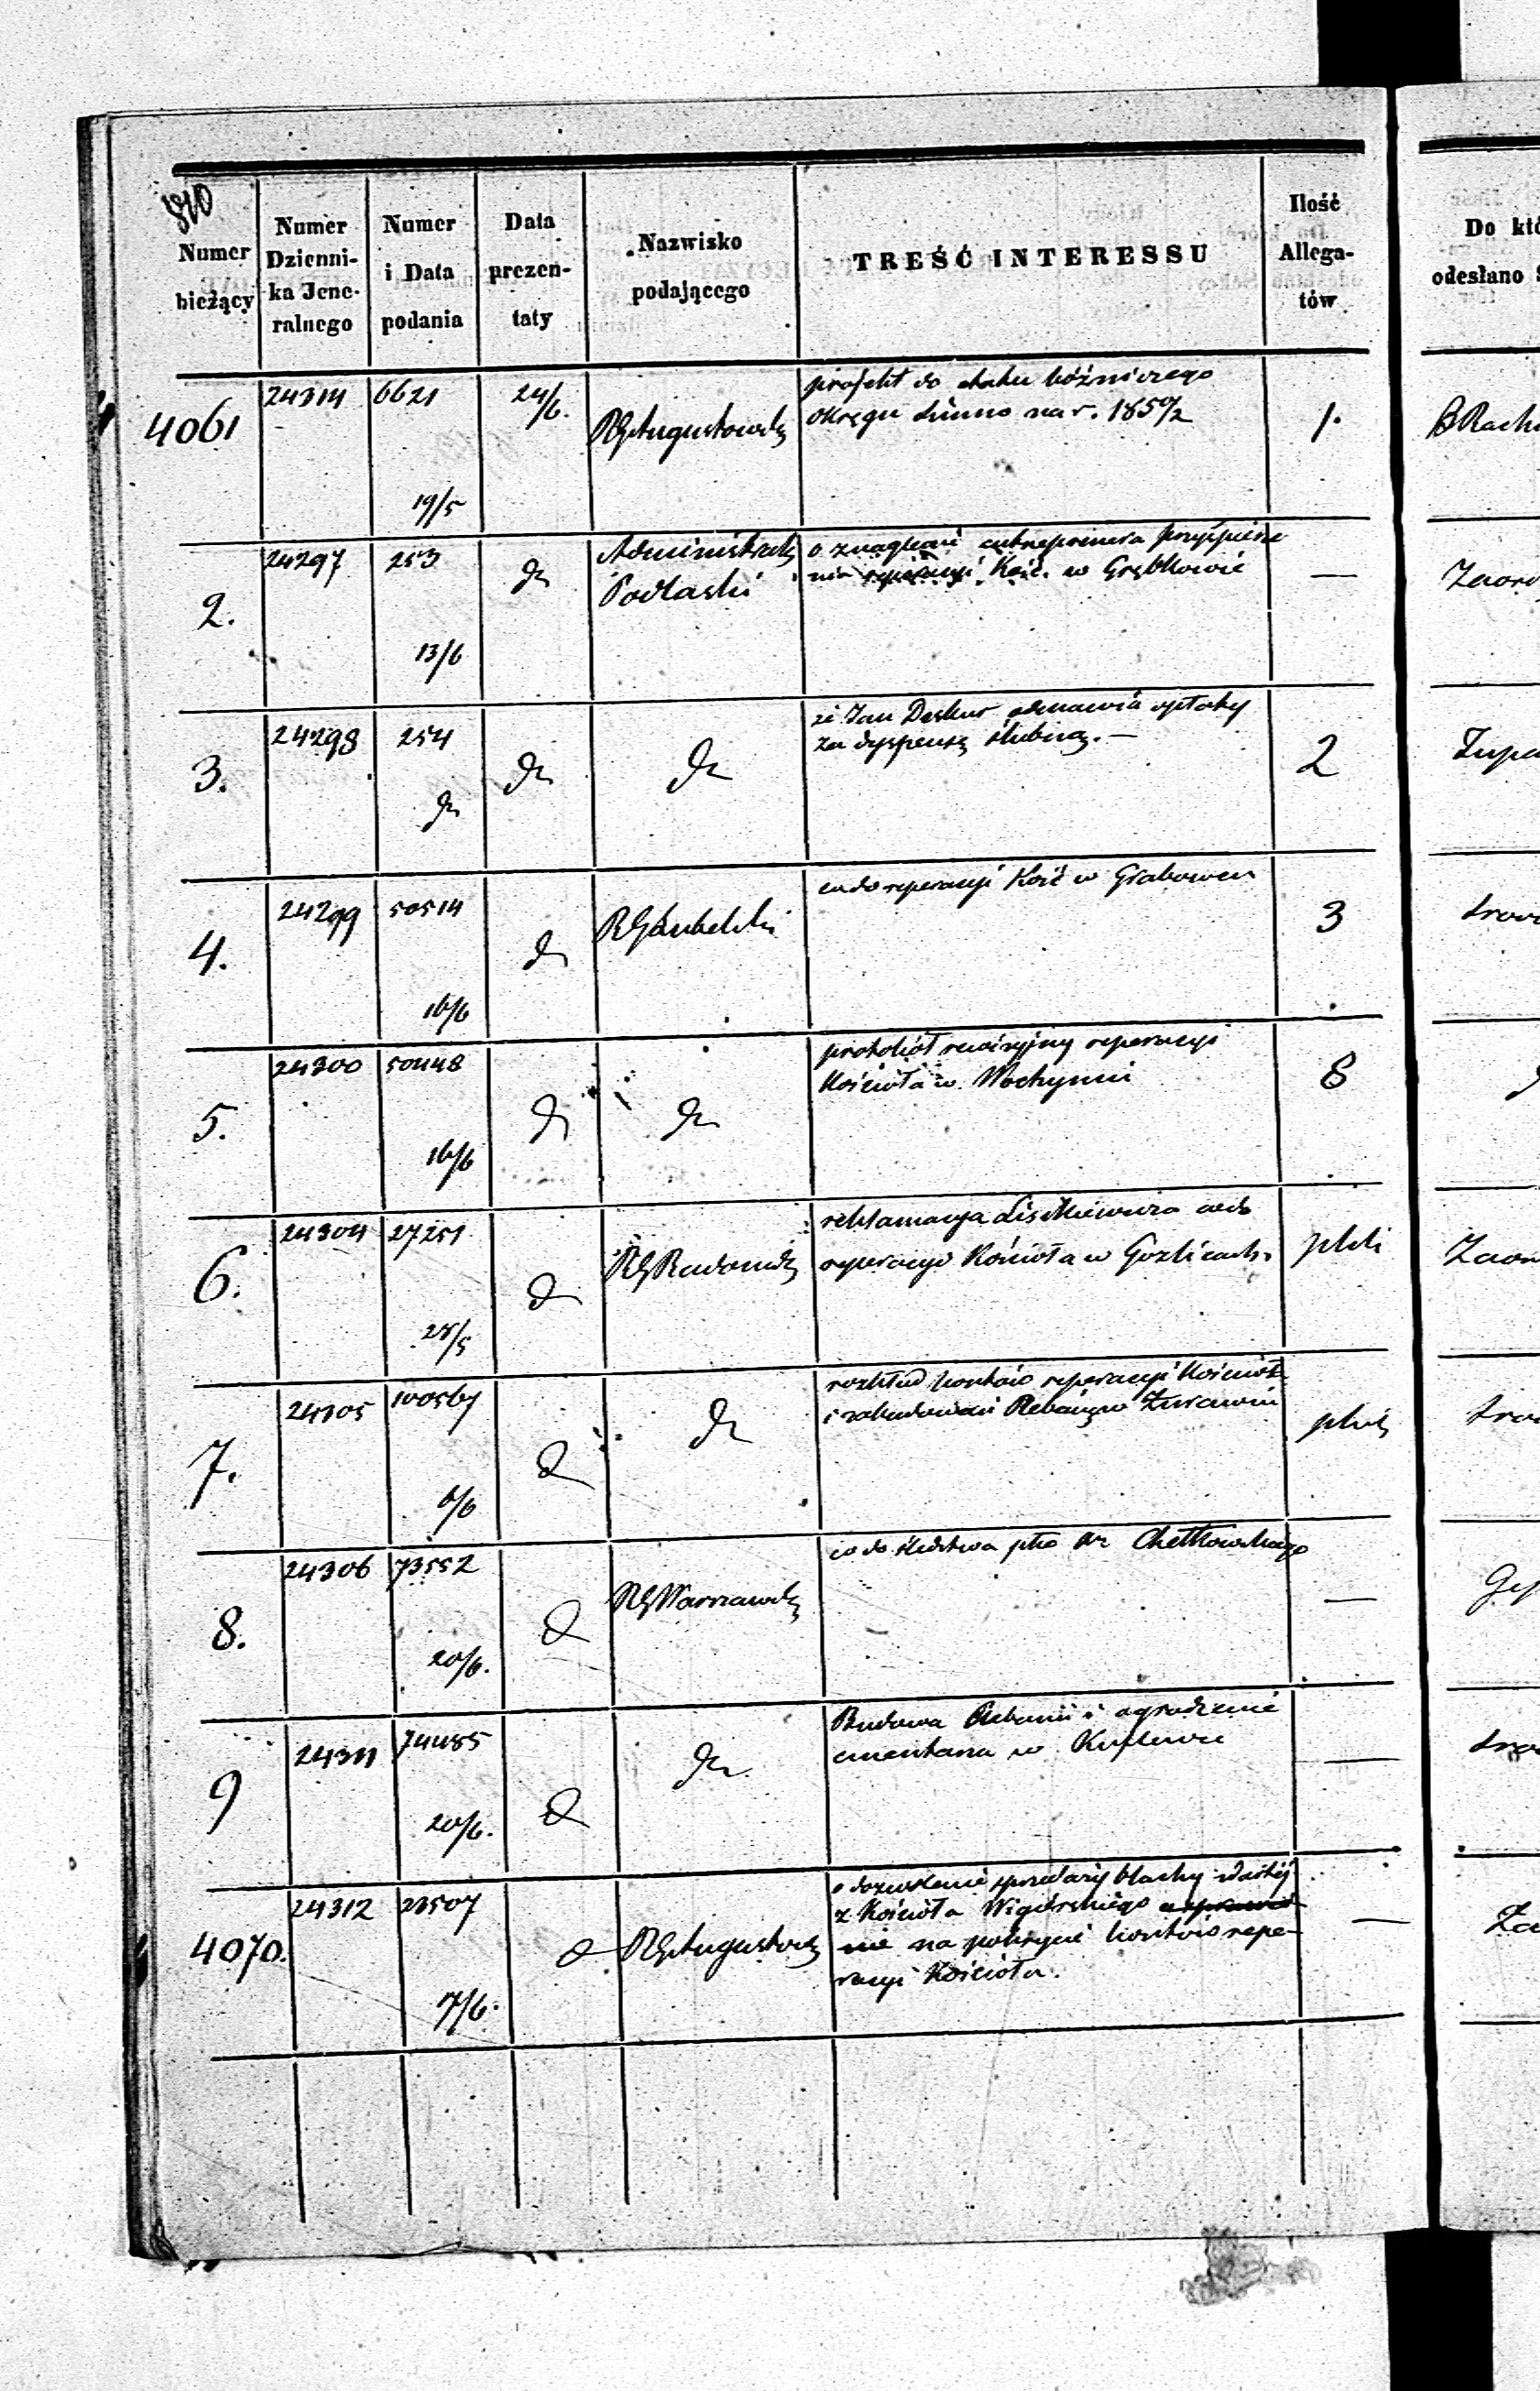 810
Numer bieżący
Numer Dzienni-ka Jene-ralnego
Numer i Data podania
Data prezen-taty
Nazwisko podającego
TREŚĆ INTERESSU
Ilość Allega-tów
Do któ
odesłano
4061
24314
6621
19/5
24/6.
RGAugustowsk
projekt do etatu bóźniczego
okręgu na r. 185 0/2
1.
B Rach
2.
24297
253
13/6
Administrat
Podlaski
o znaglenie entreprenera
reperacyi Kość. w Grębkowie
—
3.
24298
254
że Jan Deskur odmawia opłaty
za dyspensę ślubną. —
2
4.
24299
50514
16/6
RGLubelski
co do reperacyi Kość w Grabowcu
3
5.
24300
50448
16/6
protokół rewizyjny reperacyi
Kościoła w Wochyniu
8
6.
24304
27251
28/5
RGRadomsk
reklamacya co do
reperacyi Kościoła w Goźlicach.
plik
7.
24305
100567
6/6
rozkład kosztów reperacyi Kościoła
i zabudowań Pleban. w Żurawin
plik
8.
24306
73552
20/6.
RGWarszawsk
co do śledztwa pko Chełkowskiego
—
9
24311
74485
20/6.
Budowa Plebanii i ogrodzenie
cmentarza w Kuflewie
—
4070.
24312
23507
7/6.
RGAugustow
o dozwolenie sprzedaży blachy
z Kościoła Wigierskiego
na pokrycie kosztów repe-
racyi Kościoła.
—